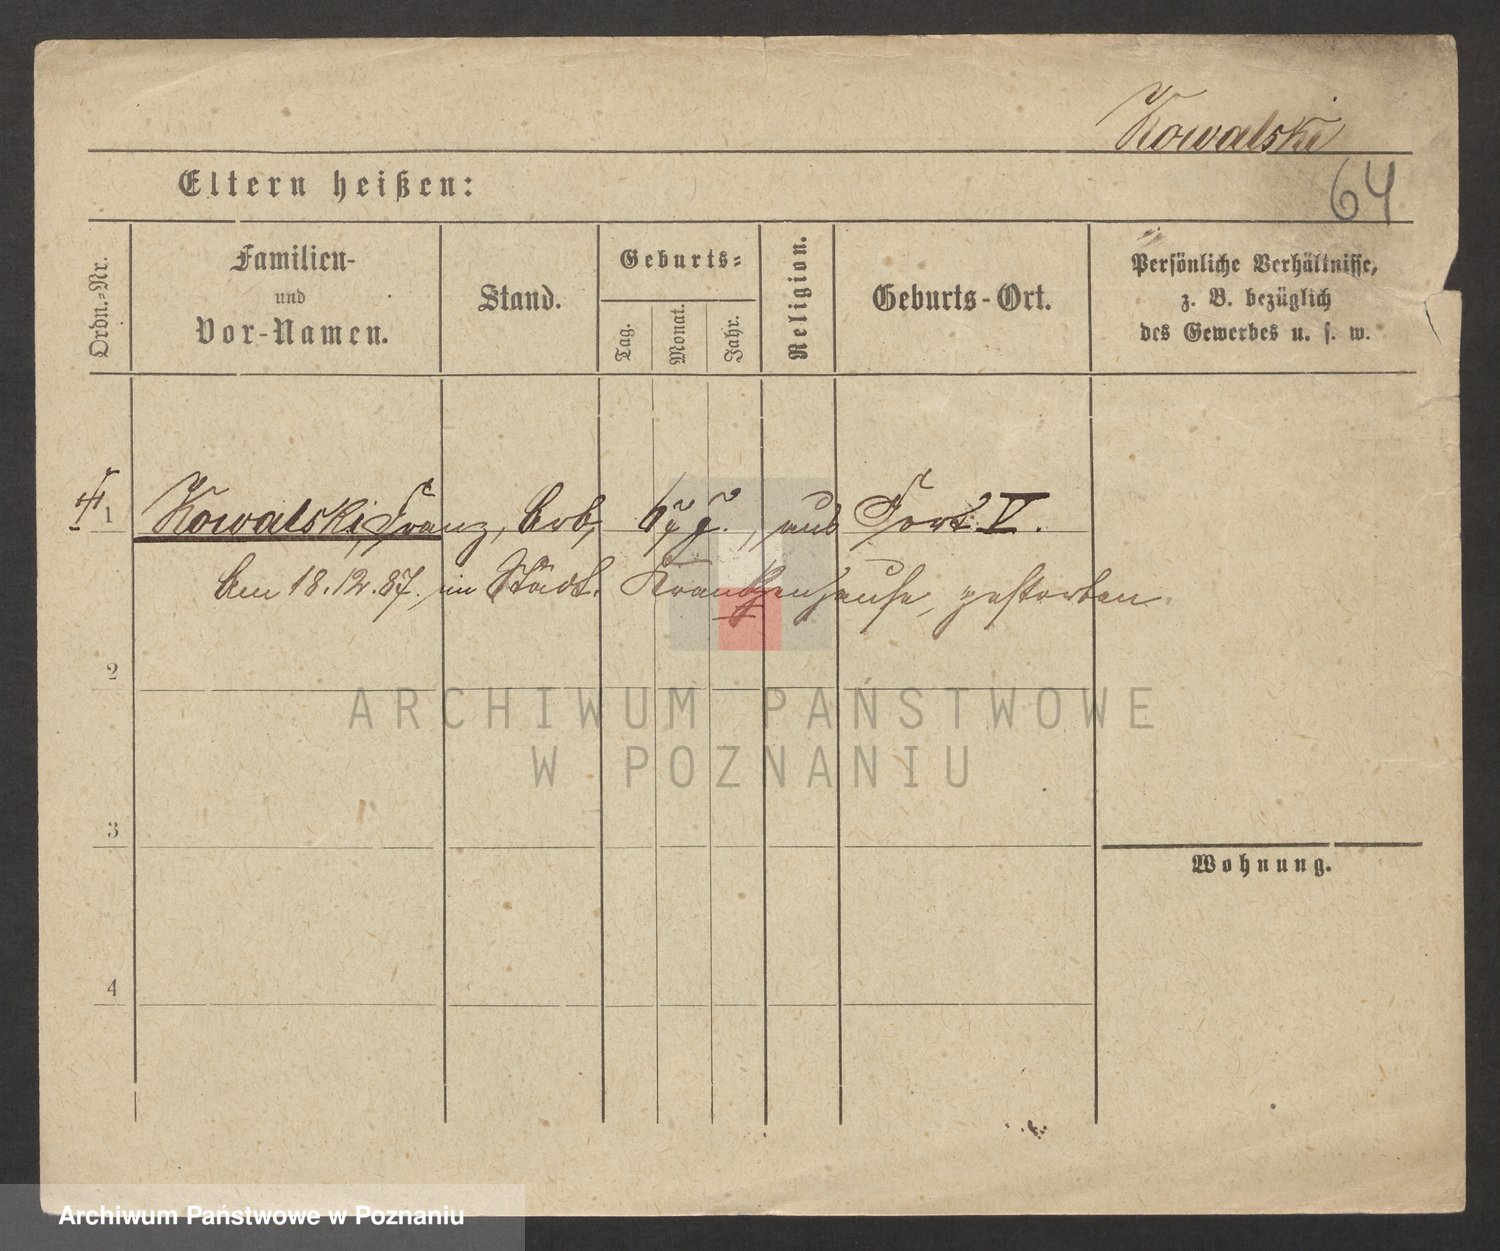 Kowalski
Eltern heißen:
64
Ordn.-Nr.
Familien-
und
Vor-Namen.
Stand.
Geburts-
Tag.
Monat.
Jahr.
Religion.
Geburts-Ort.
Persönliche Verhältnisse,
z. B. bezüglich
des Gewerbes u. s. w.
1 Kowalski, Franz, Arb, aus Fort V.
Am 18.12.87. im Städt. Krankenhause, gestorben.
2
ARCHIWUM PAŃSTWOWE
W POZNANIU
3
Wohnung.
4
Archiwum Państwowe w Poznaniu